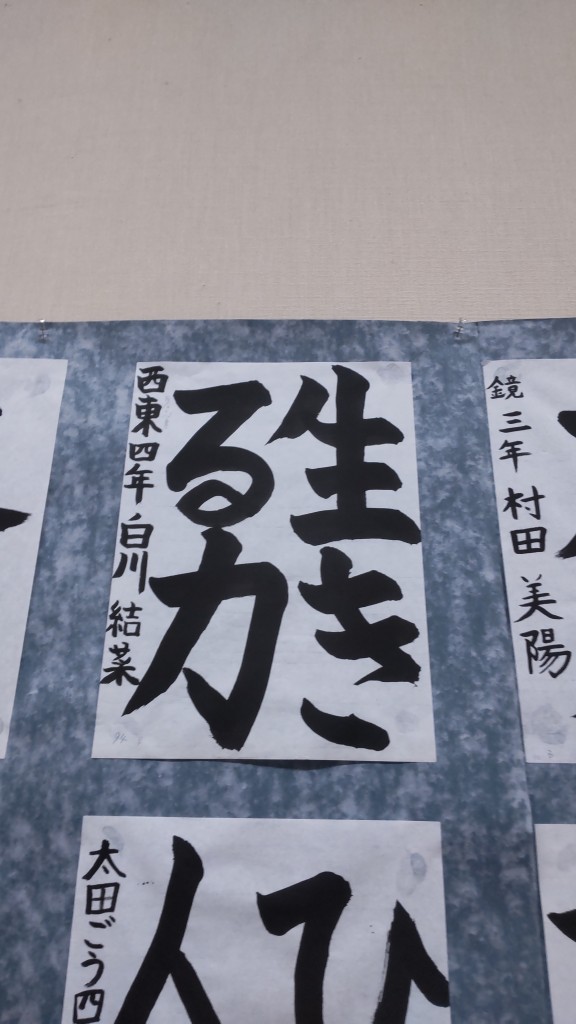 生き
る力
西東四年 白川 結菜
鏡 三年 村田 美陽
ひ
人
太田ごう四